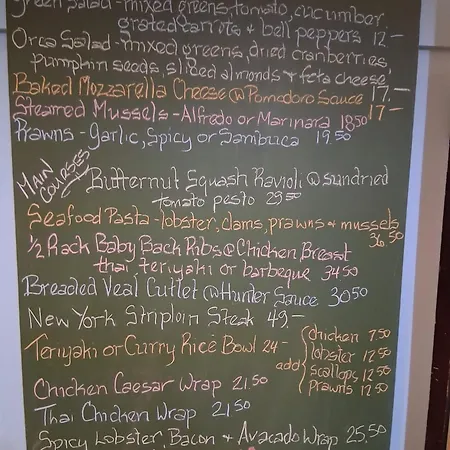 Green Salad - mixed greens, tomato, cucumber,
grated carrots & bell peppers 12-
Orca Salad - mixed greens, dried cranberries,
pumpkin seeds, sliced almonds & feta cheese
17.-
Baked Mozzarella Cheese @ Pomodoro Sauce
17-
Steamed Mussels - Alfredo or Marinara 18.50
Prawns - Garlic, Spicy or Sambuca 19.50
MAIN COURSES
Butternut Squash Ravioli @ sundried
tomato pesto 29.50
Seafood Pasta - lobster, clams, prawns & mussels
36.50
1/2 Rack Baby Back Ribs @ Chicken Breast
thai, teriyaki or barbeque 34.50
Breaded Veal Cutlet @ Hunter Sauce 30.50
New York Striploin Steak 49.-
Teriyaki or Curry Rice Bowl 24-
add
chicken 7.50
lobster 12.50
scallops 12.50
prawns 12.50
Chicken Caesar Wrap 21.50
Thai Chicken Wrap 21.50
Spicy Lobster, Bacon & Avacado Wrap 25.50